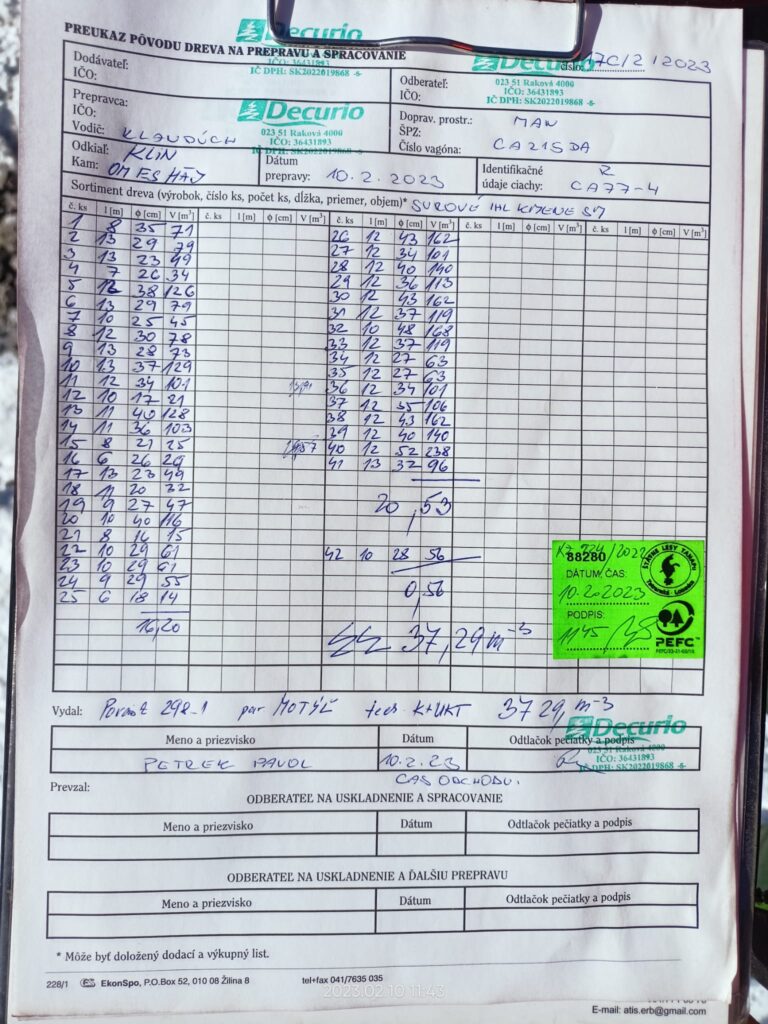 PREUKAZ PÔVODU DREVA NA PREPRAVU A SPRACOVANIE
Decurio
Dodávateľ:
IČO:
IČO: 36431893
IČ DPH: SK2022019868 -6-
číslo: 17C/2/2023
Decurio
Odberateľ:
IČO:
023 51 Raková 4000
IČO: 36431893
IČ DPH: SK2022019868 -6-
Prepravca:
IČO:
Vodič: KLAUDÚCH
Decurio
023 51 Raková 4000
IČO: 36431893
IČ DPH: SK2022019868 -6-
Doprav. prostr.: MAN
ŠPZ:
Číslo vagóna: CA215DA
Odkiaľ: KLIN
Kam: OM ES HÁJ
Dátum
prepravy: 10.2.2023
Identifikačné
údaje ciachy: CA77-4
Sortiment dreva (výrobok, číslo ks, počet ks, dĺžka, priemer, objem)* SUROVÉ IHL KMENE SM
č. ks l [m] ϕ [cm] V [m³] č. ks l [m] ϕ [cm] V [m³] č. ks l [m] ϕ [cm] V [m³] č. ks l [m] ϕ [cm] V [m³] č. ks l [m] ϕ [cm] V [m³]
1 8 35 71
2 13 29 79
3 13 23 49
4 7 26 34
5 12 38 126
6 13 29 79
7 10 25 45
8 12 30 78
9 13 28 73
10 13 37 129
11 12 34 101
12 10 17 21
13 11 40 128
14 11 36 103
15 8 21 25
16 6 26 29
17 13 23 49
18 11 20 32
19 9 27 47
20 10 40 116
21 8 16 15
22 10 29 61
23 10 29 61
24 9 29 55
25 6 18 14
16,20
26 12 43 162
27 12 34 101
28 12 40 140
29 12 36 113
30 12 43 162
31 12 37 119
32 10 48 168
33 12 37 119
34 12 27 63
35 12 27 63
36 12 34 101
37 12 35 106
38 12 43 162
39 12 40 140
40 12 52 238
41 13 32 96
20,53
42 10 28 56
0,56
37,29 m³
88280
ŠTÁTNE LESY TANAPU
Tatranská Lomnica
DÁTUM, ČAS:
10.2.2023
PODPIS:
1145
PEFC
Vydal: Porast 298-1 par MOTÝĽ 37 29, m³
Decurio
023 51 Raková 4000
IČO: 36431893
IČ DPH: SK2022019868 -6-
Meno a priezvisko Dátum Odtlačok pečiatky a podpis
PETREK PAVOL 10.2.23
ČAS ODCHODU:
Prevzal:
ODBERATEĽ NA USKLADNENIE A SPRACOVANIE
Meno a priezvisko Dátum Odtlačok pečiatky a podpis
ODBERATEĽ NA USKLADNENIE A ĎALŠIU PREPRAVU
Meno a priezvisko Dátum Odtlačok pečiatky a podpis
* Môže byť doložený dodací a výkupný list.
228/1 EkonSpo, P.O.Box 52, 010 08 Žilina 8 tel+fax 041/7635 035
2023.02.10 11:43
E-mail: atis.erb@gmail.com